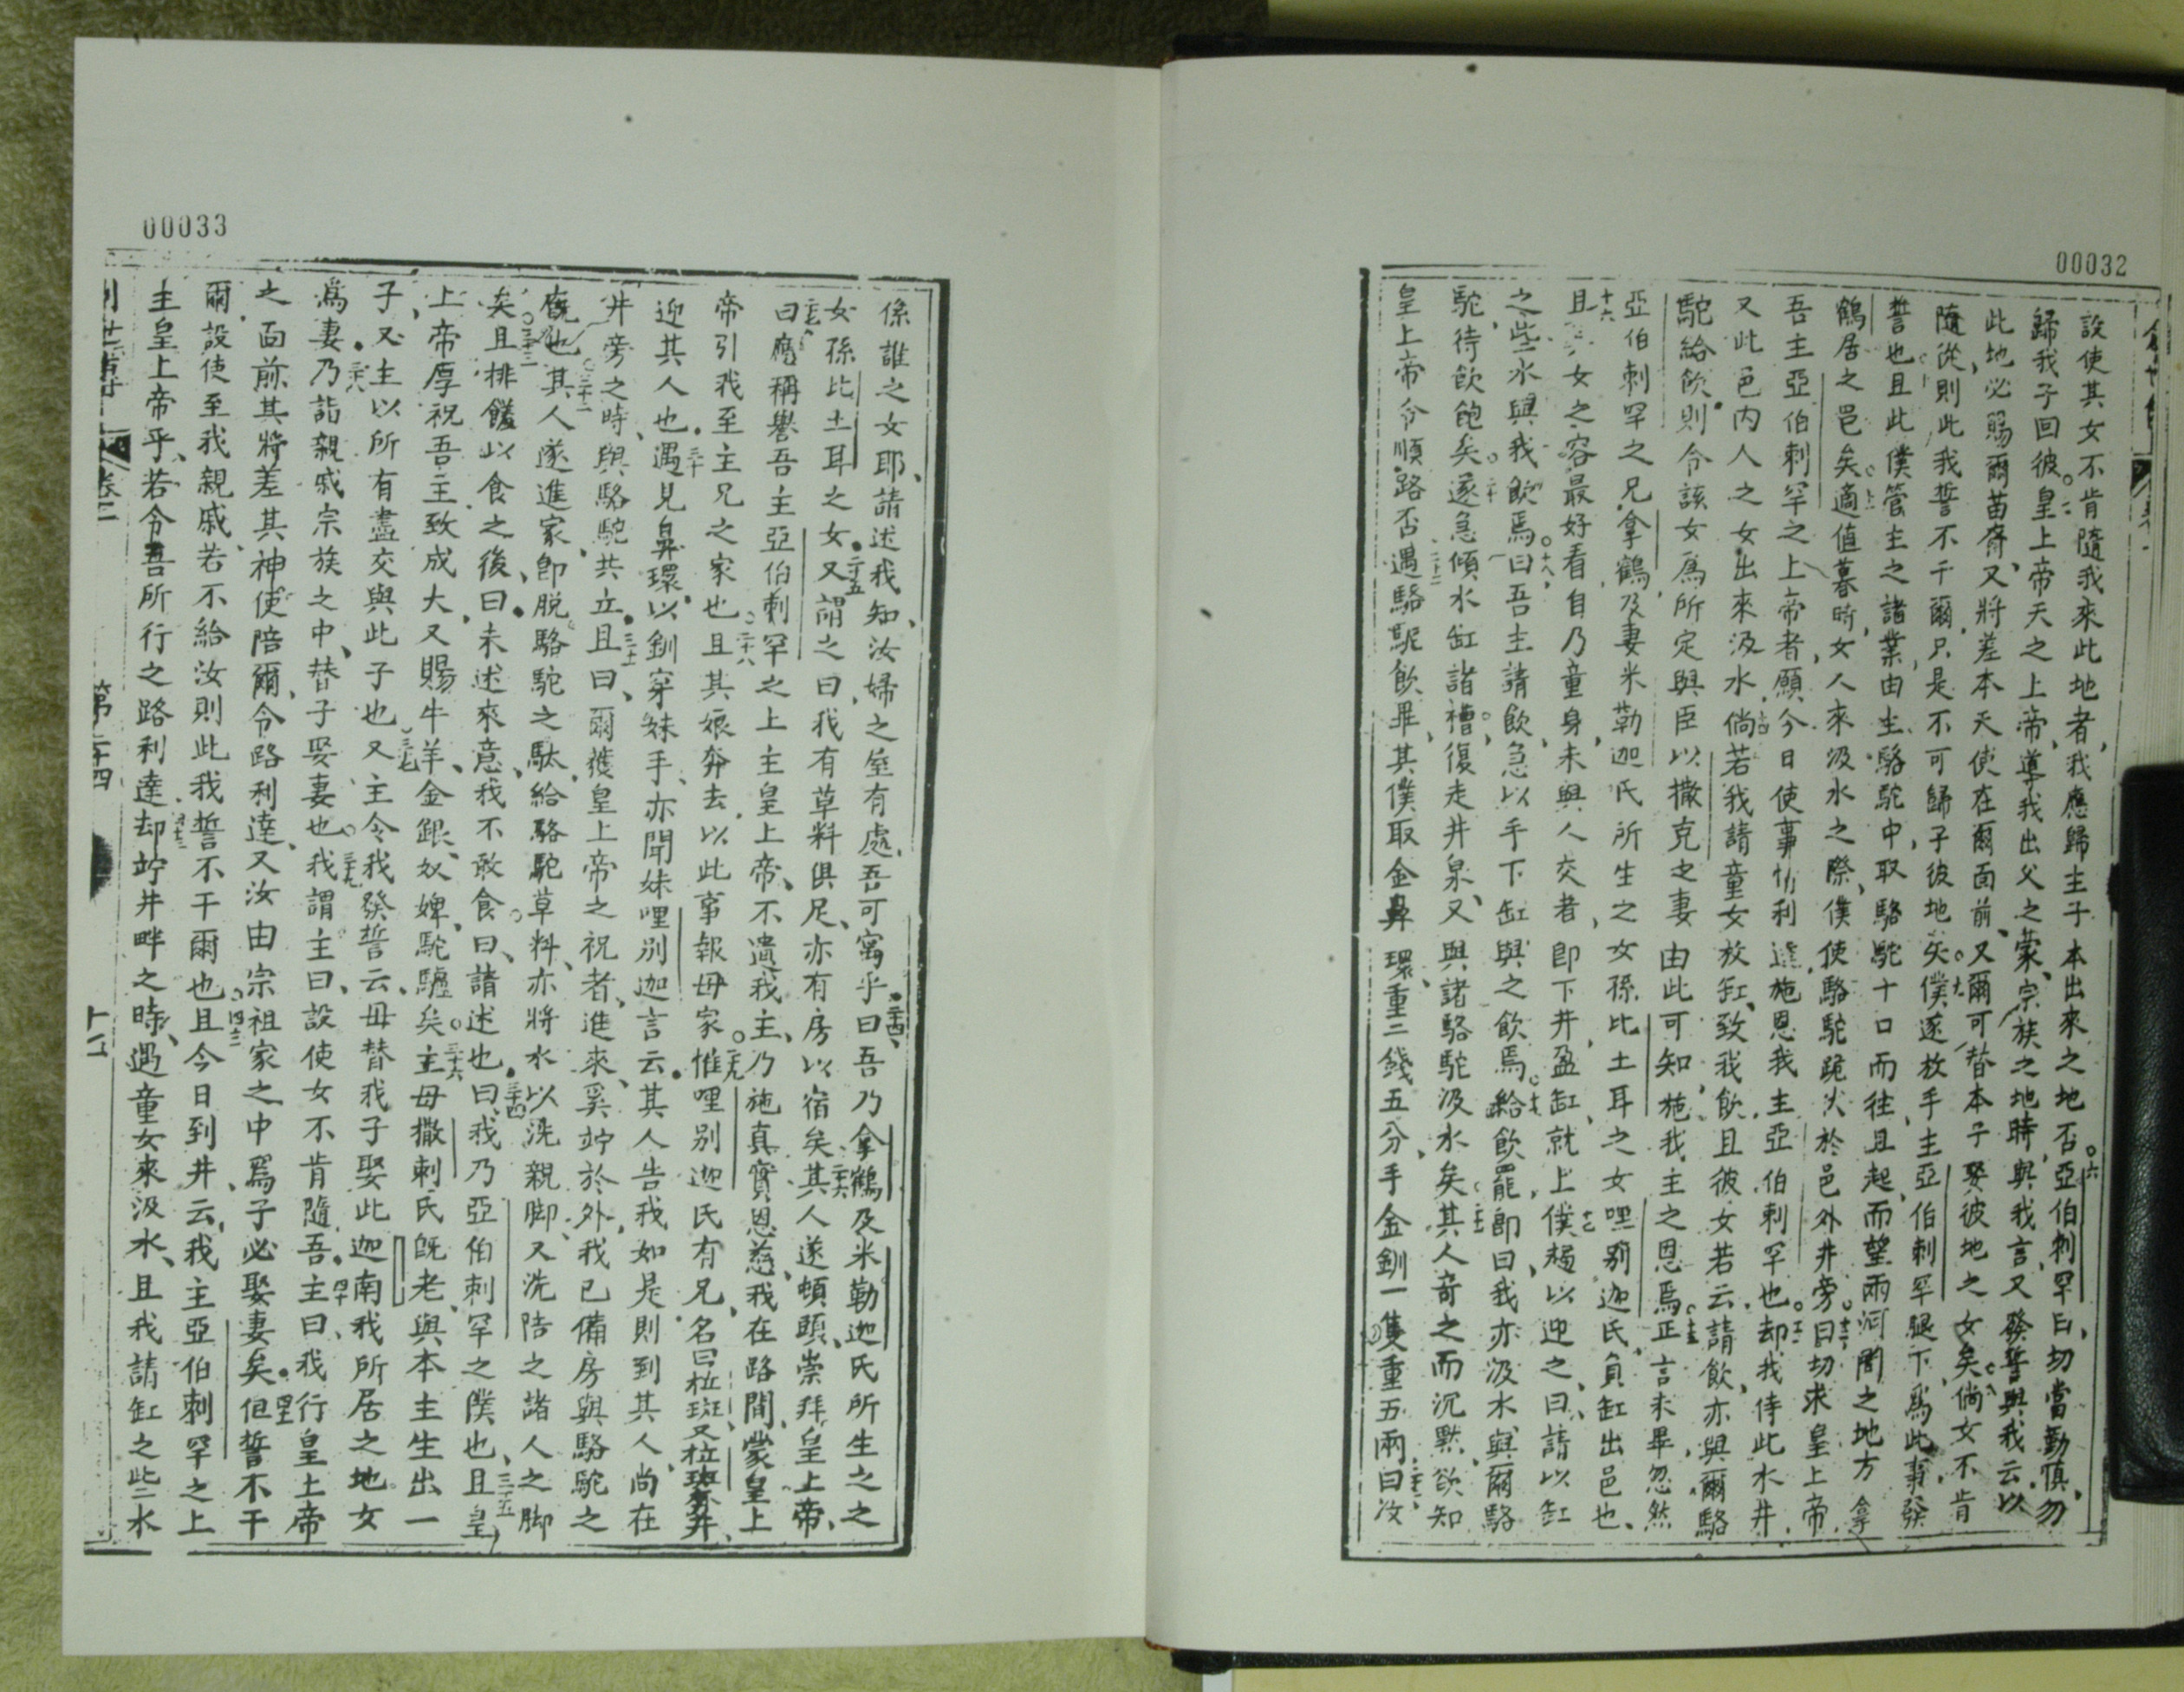 00032
設使其女不肯隨我來此地者、我應歸主子本出來之地否。六亞伯刺罕曰、切當勤慎、勿
歸我子回彼。七皇上帝天之上帝、導我出父之蒙、宗族之地時、與我言、又發誓與我云、以
此地必賜爾苗裔、又將差本天使在爾面前、又爾可替本子娶彼地之女矣。八倘女不肯
隨從、則此我誓不干爾、只是不可歸子彼地矣。九僕遂放手主亞伯刺罕腿下、為此事發
誓也。十且此僕管主之諸業、由主駱駝中、取駱駝十口而往、且起而望兩河間之地方拿
鶴居之邑矣。十一適值暮時、女人來汲水之際、僕使駱駝跪伏於邑外井旁。十二曰切求皇上帝
吾主亞伯刺罕之上帝者、願今日使事情利達、施恩我主亞伯刺罕也。十三却我侍此水井、
又此邑內人之女出來汲水、十四倘若我請童女放缸、致我飲、且彼女若云請飲、亦與爾駱
駝給飲、則令該女為所定與臣以撒克之妻、由此可知施我主之恩焉。十五正言未畢、忽然
十六亞伯刺罕之兄拿鶴、及妻米勒迦氏所生之女孫比土耳之女哩別迦氏、負缸出邑也、
且其女之容最好看、自乃童身、未與人交者、即下井、盈缸就上、十七僕趨以迎之曰、請以缸
之些水與我飲焉。十八曰吾主請飲、急以手下缸與之飲焉。十九給飲罷、即曰我亦汲水與爾駱
駝、待飲飽矣。二十遂急傾水缸諸槽、復走井泉、又與諸駱駝汲水矣。二十一其人奇之而沉默、欲知
皇上帝令順路否。二十二遇駱駝飲畢、其僕取金鼻環、重二錢五分、手金釧一隻重五兩、二十三曰汝
00033
係誰之女耶、請述我知、汝婦之室有處、吾可寓乎。二十四曰、吾乃拿鶴及米勒迦氏所生之之
女孫比土耳之女。二十五又謂之曰、我有草料俱足、亦有房以宿矣。二十六其人遂頓頭、崇拜皇上帝、
二十七曰、應稱譽吾主亞伯刺罕之上主皇上帝、不遺我主、乃施真實恩慈、我在路間、蒙皇上
帝引我至主兄之家也。二十八且其娘奔去、以此事報母家。二十九惟哩別迦氏有兄、名曰拉班、又拉班奔井、
迎其人也。三十遇見鼻環、以釧穿妹手、亦聞妹哩別迦言云、其人告我如是、則到其人、尚在
井旁之時、與駱駝共立。三十一且曰、爾獲皇上帝之祝者、進來、奚竚於外、我已備房與駱駝之
廐也。三十二其人遂進家、即脫駱駝之駄、給駱駝草料、亦將水以洗親脚、又洗陪之諸人之脚
矣。三十三且排饌以食之後、曰、未述來意、我不敢食。曰、請述也。三十四曰、我乃亞伯刺罕之僕也、三十五且皇
上帝厚祝吾主、致成大、又賜牛羊、金銀、奴婢、駝驢矣。三十六主母撒刺氏既老、與本主生出一
子、又主以所有盡交與此子也。三十七又主令我發誓云、毋替我子娶此迦南我所居之地女
為妻。三十八乃詣親戚宗族之中、替子娶妻也。三十九我謂主曰、設使女不肯隨吾。四十主曰、我行皇上帝
之面前、其將差其神使陪爾、令路利達、又汝由宗祖家之中、為子必娶妻矣。四十一但誓不干
爾、設使至我親戚、若不給汝、則此我誓不干爾也。四十二且今日到井云、我主亞伯刺罕之上
主皇上帝乎、若令吾所行之路利達、四十三却竚井畔之時、遇童女來汲水、且我請缸之些水
創世傳
卷二
第二十四